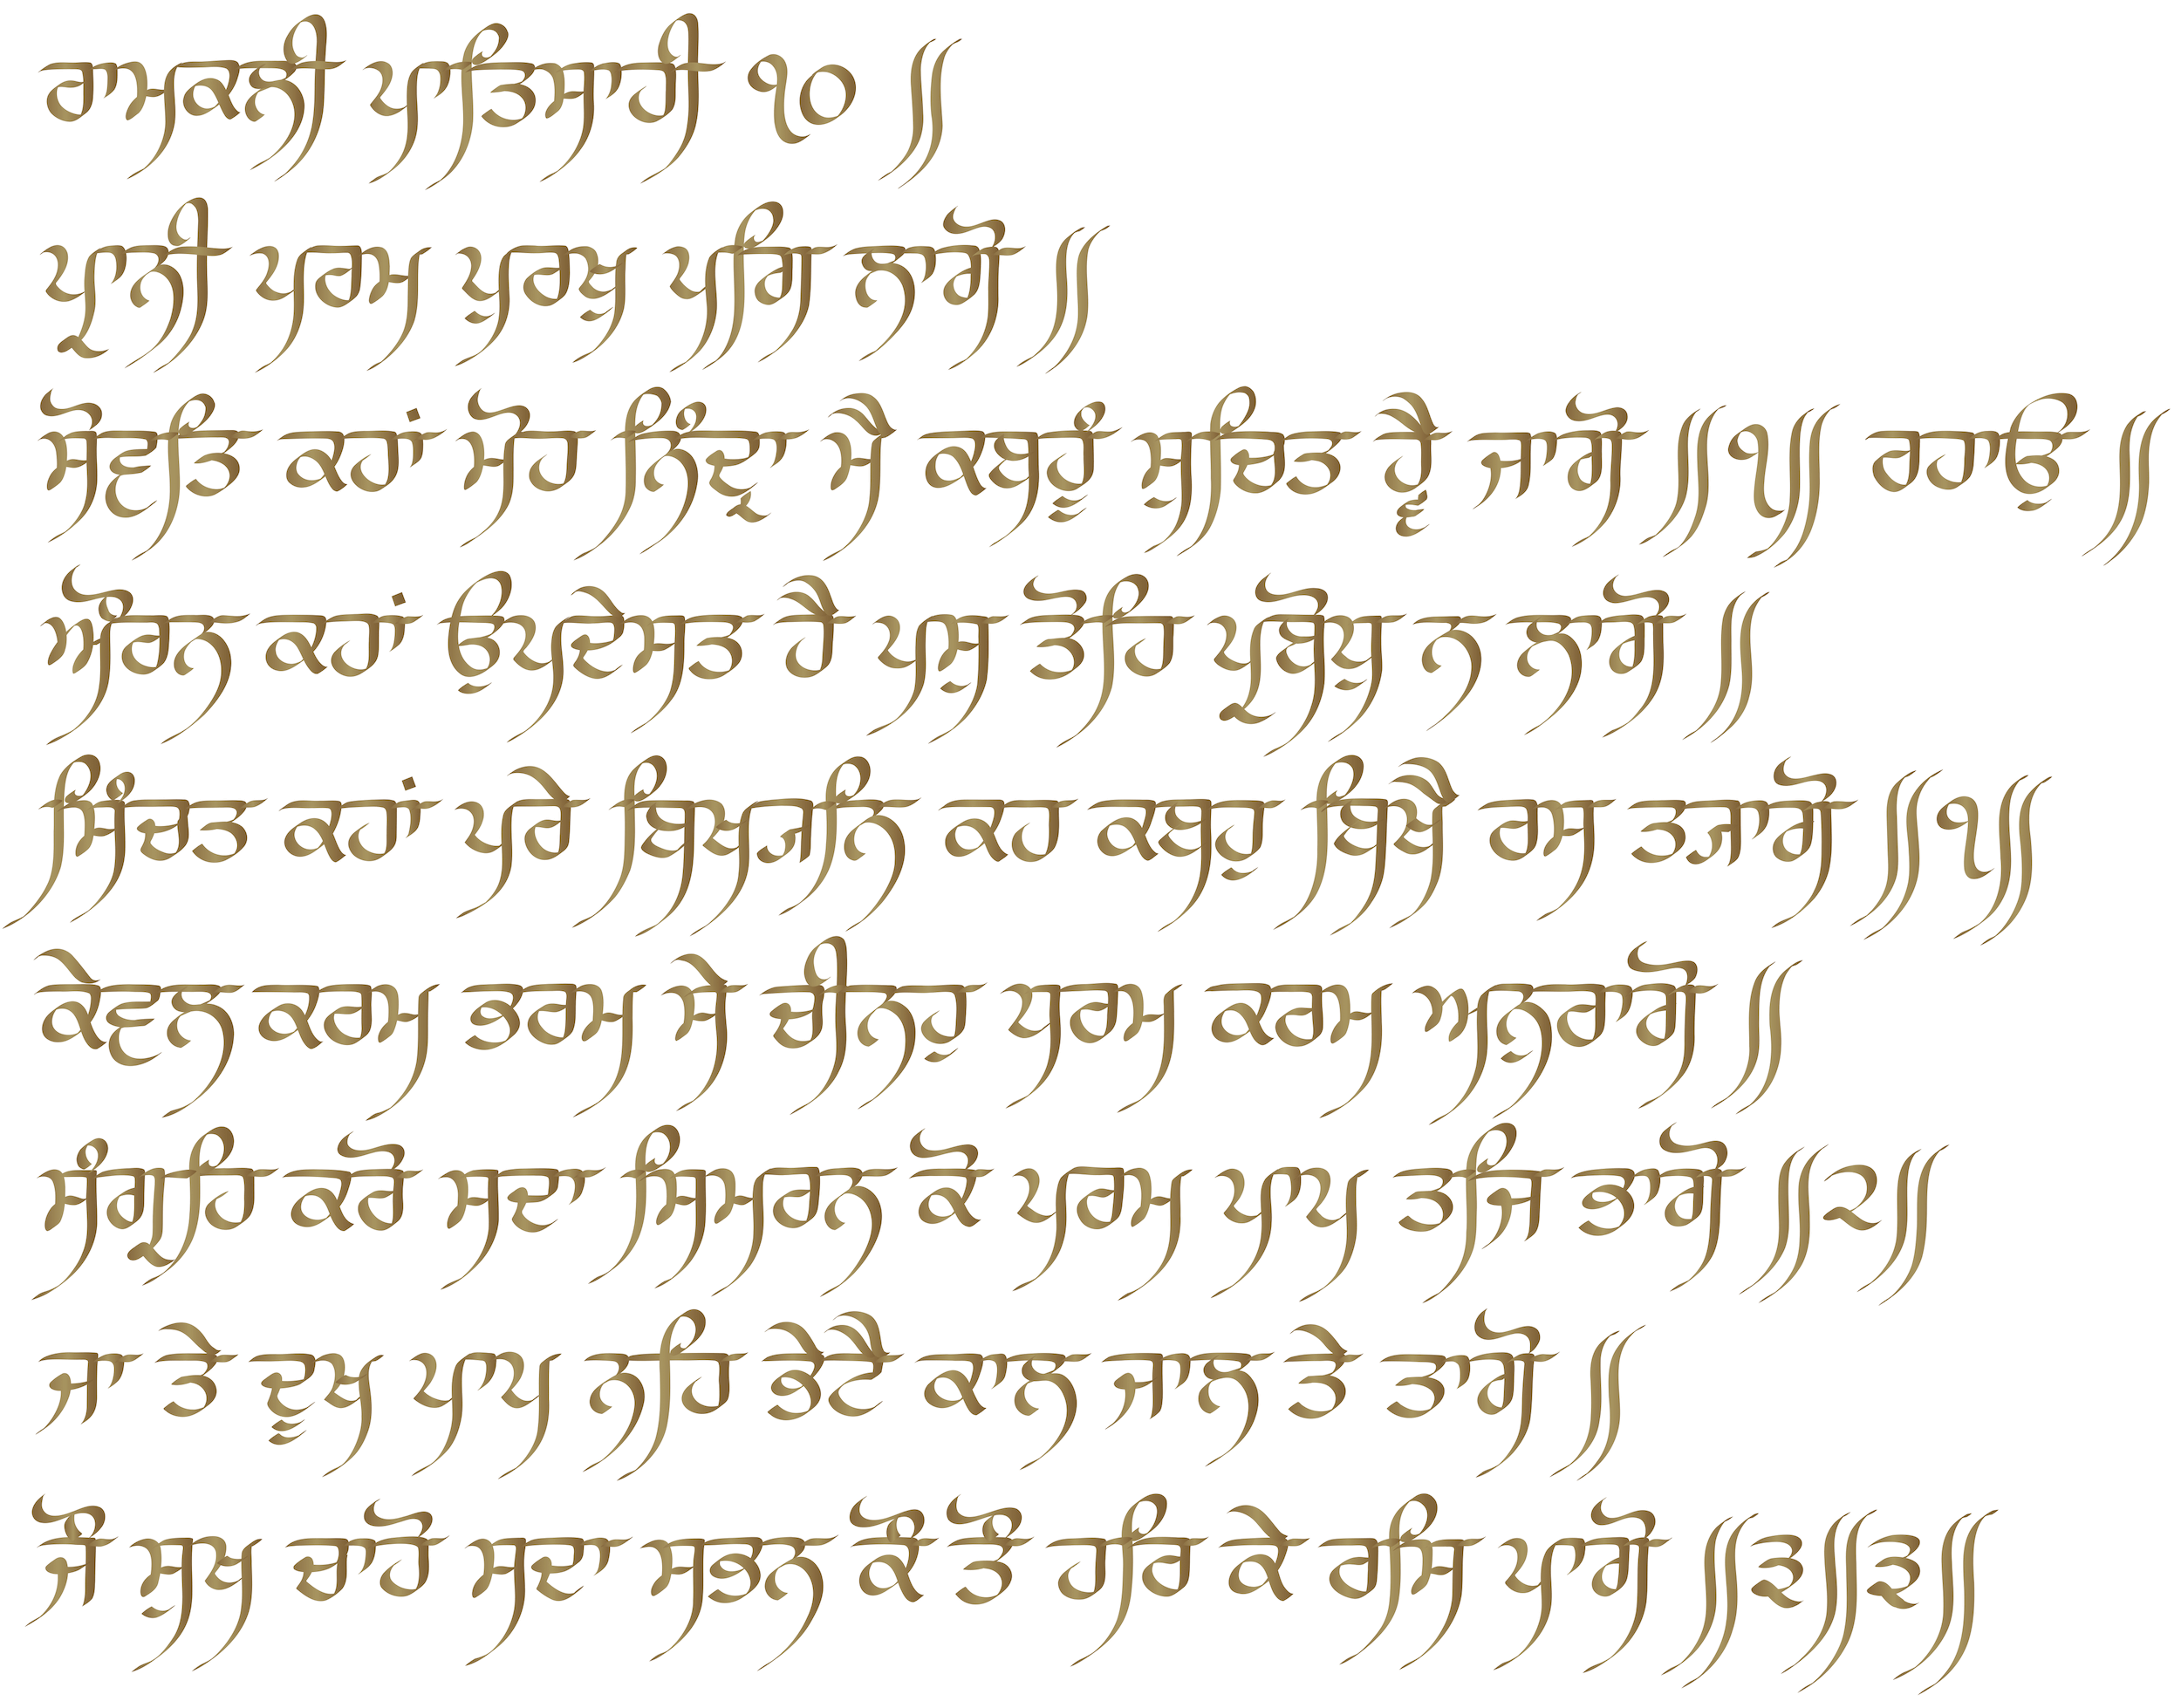 ਰਾਮਕਲੀ ਪਾਤਿਸਾਹੀ ੧੦ ॥
ਪ੍ਰਾਨੀ ਪਰਮ ਪੁਰਖੁ ਪਗਿ ਲਾਗੋ ॥
ਸੋਵਤਿ ਕਹਾਂ ਮੋਹ ਨਿੰਦ੍ਰਾ ਮੈ ਕਬਹੂੰ ਸੁਚਿਤ ਹ੍ਵੈ ਜਾਗੋ ॥੧॥ ਰਹਾਉ ॥
ਔਰਨ ਕਹਾਂ ਉਪਦੇਸਤ ਹੈ ਪਸੁ ਤੋਹਿ ਪ੍ਰਬੋਧੁ ਨ ਲਾਗੋ ॥
ਸਿੰਚਤ ਕਹਾਂ ਪਰੇ ਬਿਖਯਨਿ ਕਹ ਕਬਹੁ ਬਿਖੈ ਰਸ ਤਯਾਗੋ ॥੧॥
ਕੇਵਲ ਕਰਮ ਭਰਮ ਸੇ ਚੀਨਹੁ ਧਰਮ ਕਰਮ ਅਨੁਰਾਗੋ ॥
ਸੰਗ੍ਰਹਿ ਕਰੋ ਸਦਾ ਸਿਮਰਨ ਕੋ ਪਰਮ ਪਾਪ ਤਜਿ ਭਾਗੋ ॥੨॥
ਜਾ ਤੇ ਦੂਖ ਪਾਪ ਨਹਿ ਭੇਟੈ ਕਾਲ ਜਾਲ ਤੇ ਤਾਗੋ ॥
ਜੌ ਸੁਖ ਚਾਹੋ ਸਦਾ ਸਭਨ ਕੌ ਤੌ ਹਰਿ ਕੇ ਰਸਿ ਪਾਗੋ ॥੩॥੩॥